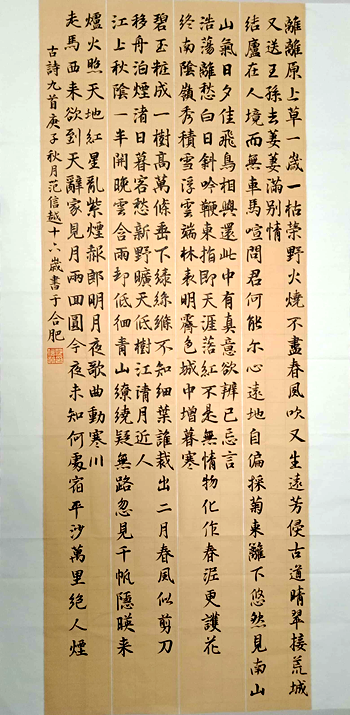 離離原上草一歲一枯榮野火燒不盡春風吹又生遠芳侵古道晴翠接荒城
又送王孫去萋萋滿別情
結廬在人境而無車馬喧問君何能尔心遠地自偏採菊東離下悠然見南山
山氣日夕佳飛鳥相與還此中有真意欲辨已忘言
浩蕩離愁白日斜吟鞭東指即天涯落紅不是無情物化作春泥更護花
終南陰嶺秀積雪浮雲端林表明霽色城中增暮寒
碧玉粧成一樹高萬條垂下綠絲絛不知細葉誰裁出二月春風似剪刀
移舟泊煙渚日暮客愁新野曠天低樹江清月近人
江上秋陰一半開晚雲含雨却低佪青山繚繞疑無路忽見千帆隱暎来
爐火照天地紅星亂紫煙赧郎明月夜歌曲動寒川
走馬西来欲到天辭家見月兩回圓今夜未知何處宿平沙萬里絕人煙
古詩九首庚子秋月范信越十六歲書于合肥